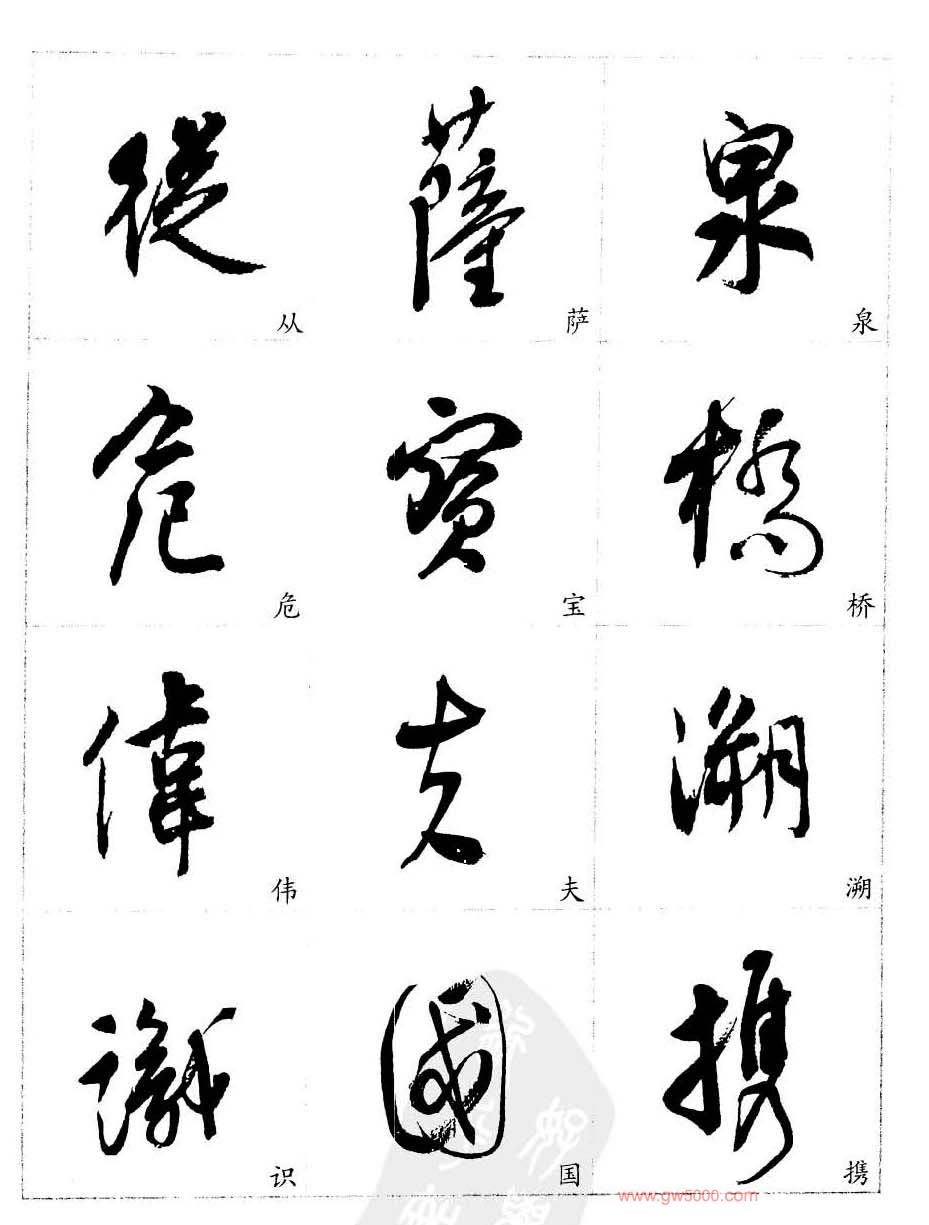 從 薩 泉
从 萨 泉
危 寶 橋
危 宝 桥
偉 夫 溯
伟 夫 溯
識 國 携
识 国 携
www.gw5000.com